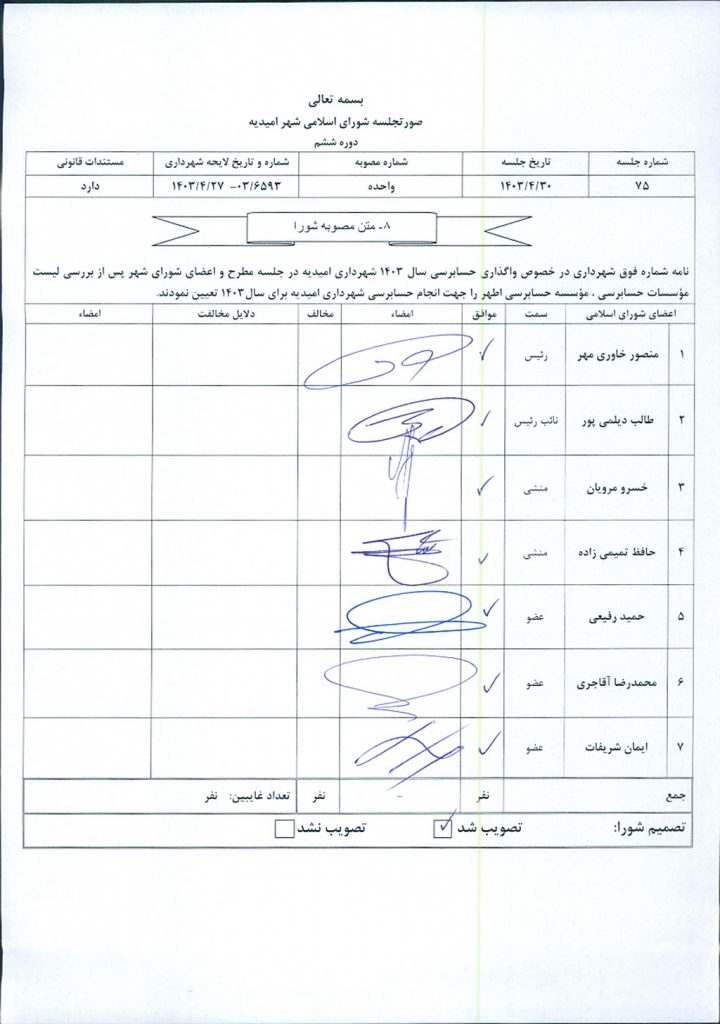 بسمه تعالی
صورتجلسه شورای اسلامی شهر امیدیه
دوره ششم
شماره جلسه تاریخ جلسه شماره مصوبه شماره و تاریخ لایحه شهرداری مستندات قانونی
۷۵ ۱۴۰۳/۴/۳۰ واحده ۰۳/۶۵۹۳- ۱۴۰۳/۴/۲۷ دارد
۸- متن مصوبه شورا
نامه شماره فوق شهرداری در خصوص واگذاری حسابرسی سال ۱۴۰۳ شهرداری امیدیه در جلسه مطرح و اعضای شورای شهر پس از بررسی لیست
مؤسسات حسابرسی ، مؤسسه حسابرسی اطهر را جهت انجام حسابرسی شهرداری امیدیه برای سال۱۴۰۳ تعیین نمودند.
اعضای شورای اسلامی سمت موافق امضاء مخالف دلایل مخالفت امضاء
۱ منصور خاوری مهر رئیس ✓
۲ طالب دیلمی پور نائب رئیس ✓
۳ خسرو مرویان منشی ✓
۴ حافظ تمیمی زاده منشی ✓
۵ حمید رفیعی عضو ✓
۶ محمدرضا آقاجری عضو ✓
۷ ایمان شریفات عضو ✓
جمع نفر - نفر تعداد غایبین: نفر
تصمیم شورا: تصویب شد ☑ تصویب نشد ☐